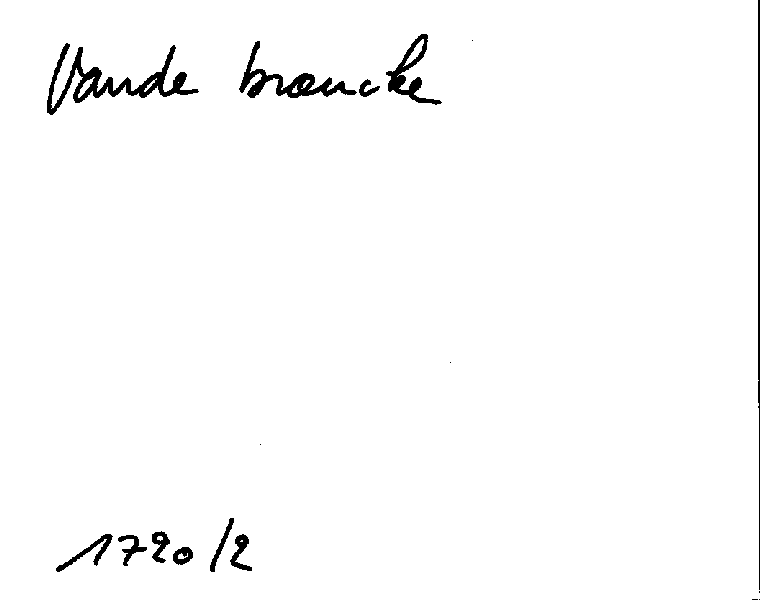 Vande broucke
1720/2